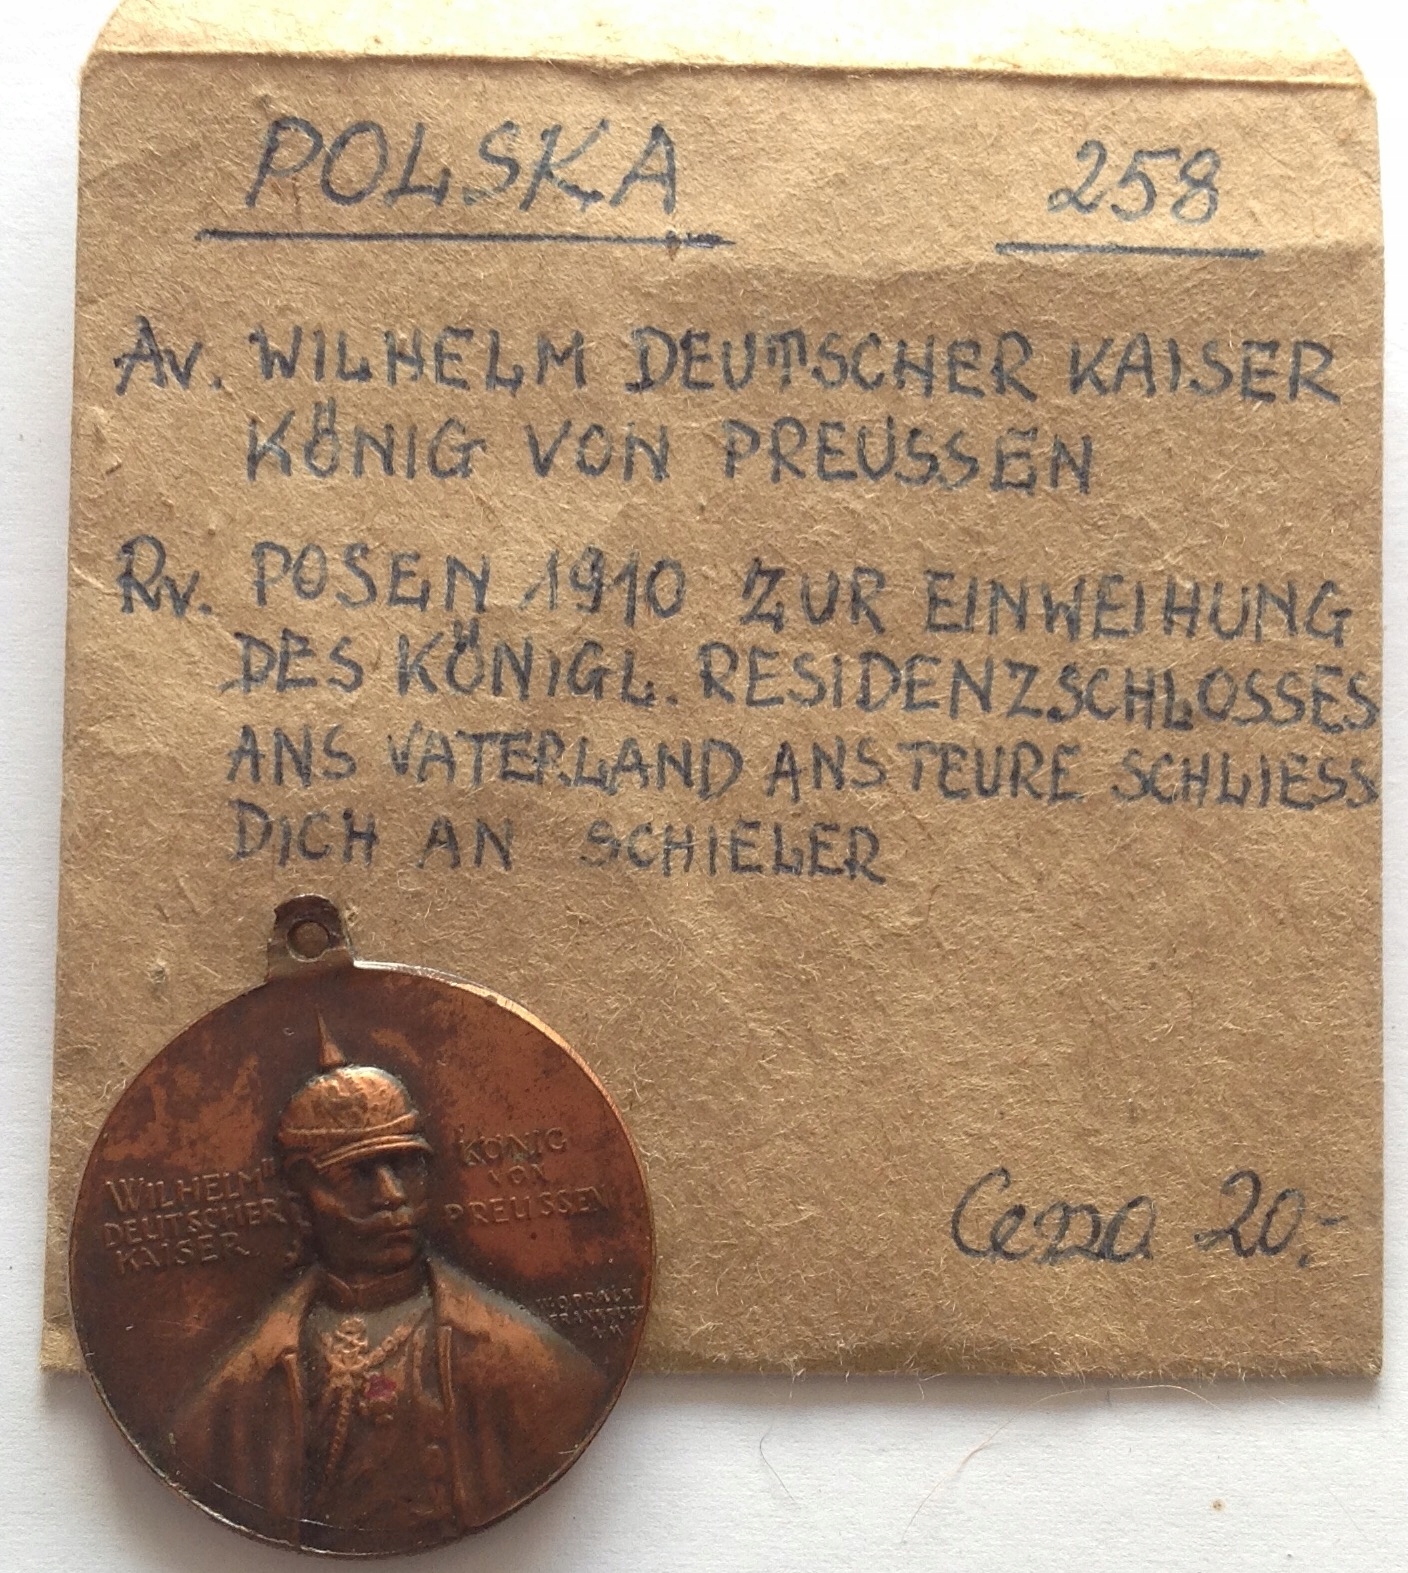 POLSKA 258
Av. WILHELM DEUTSCHER KAISER
KÖNIG VON PREUSSEN
Rv. POSEN 1910 ZUR EINWEIHUNG
DES KÖNIGL. RESIDENZSCHLOSSES
ANS VATERLAND ANS TEURE SCHLIESS
DICH AN SCHIELER
Cena 20,-
WILHELM II
DEUTSCHER
KAISER
KÖNIG
VON
PREUSSEN
FRANKFURT